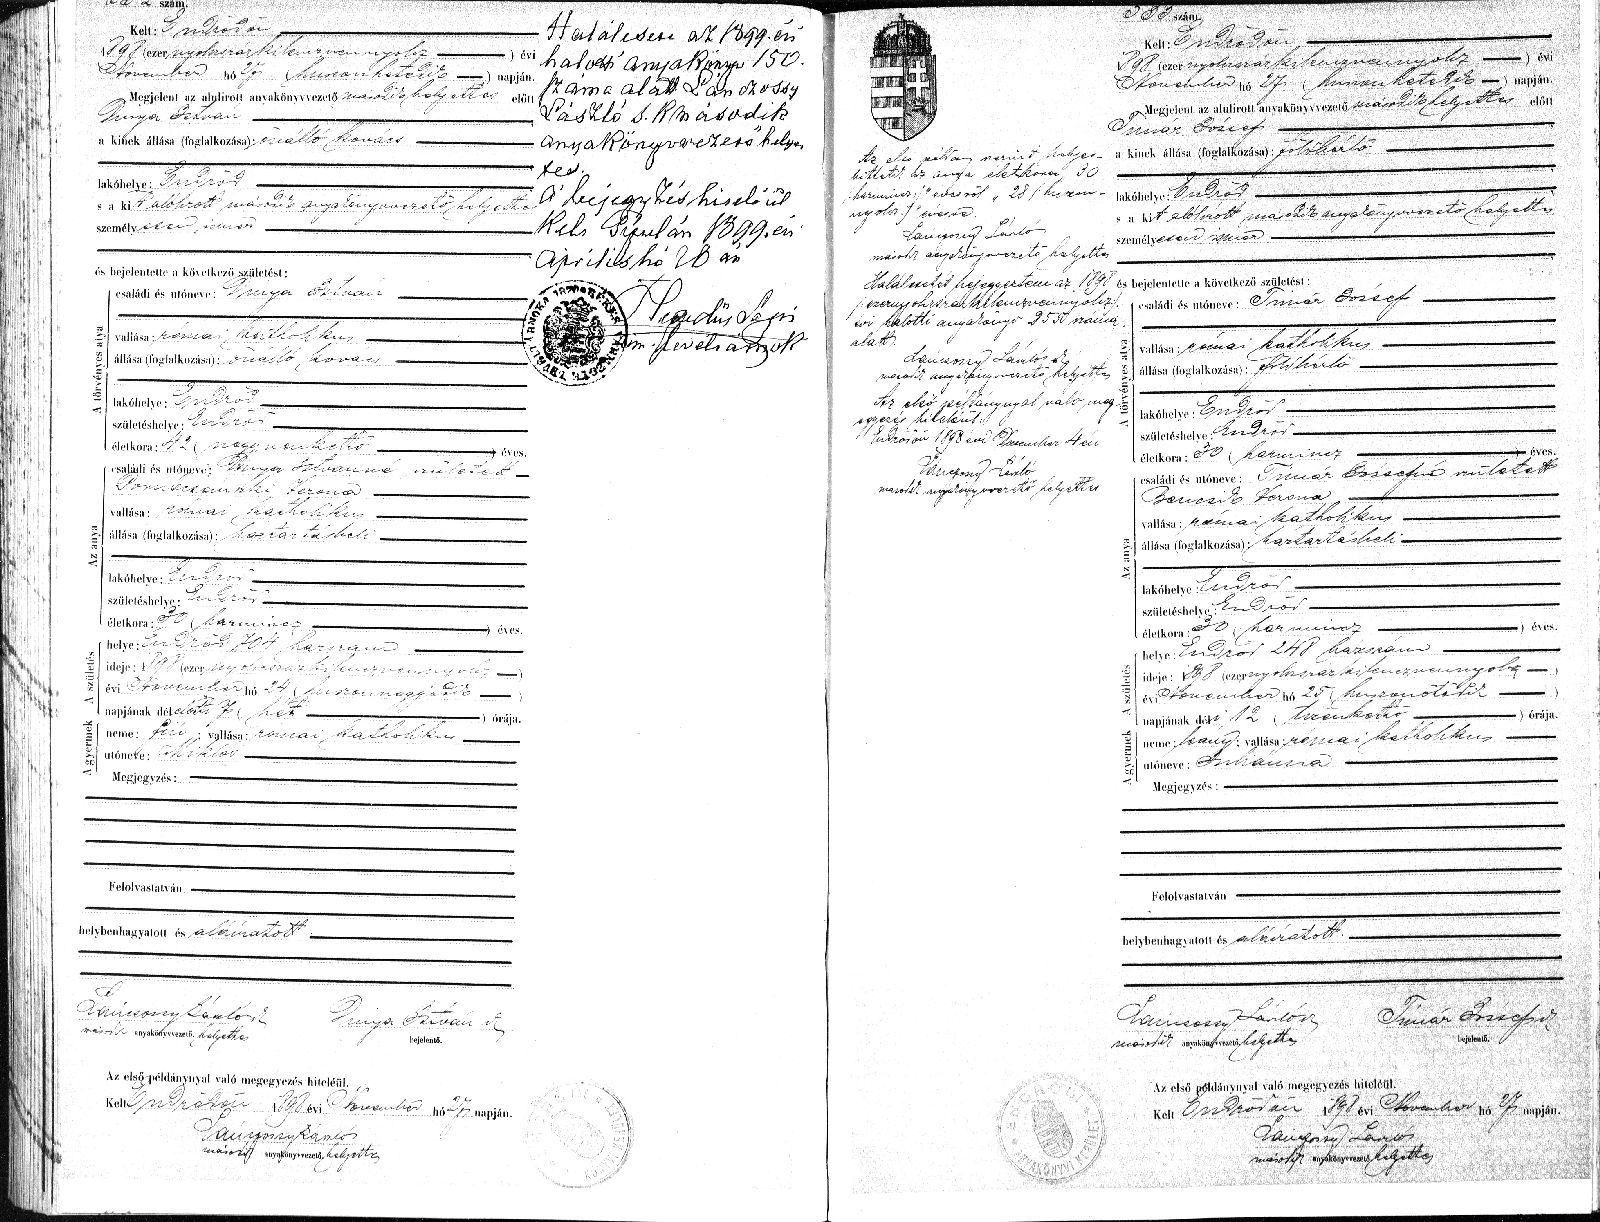 szám.
Kelt: Endrődön
1898 (ezernyolczszázkilenczvennyolcz) évi
November hó 27 (huszonhetedik) napján.
Megjelent az alulirott anyakönyvvezető második helyettes előtt
István
a kinek állása (foglalkozása): önálló kovács
lakóhelye: Endrőd
s a kit alólirott második anyakönyvvezető helyettes
személyesen ismer
és bejelentette a következő születést:
A törvényes atya
családi és utóneve: István
vallása: római katholikus
állása (foglalkozása): önálló kovács
lakóhelye: Endrőd
születéshelye: Endrőd
életkora: 42 (negyvenkettő) éves.
Az anya
családi és utóneve: Istvánné született
Verona
vallása: római katholikus
állása (foglalkozása): háztartásbeli
lakóhelye: Endrőd
születéshelye: Endrőd
életkora: 30 (harmincz) éves.
A születés
helye: Endrőd 704 házszám
ideje: 1898 (ezernyolczszázkilenczvennyolcz)
évi November hó 24 (huszonnegyedik)
napjának délelőtt 7 (hét) órája.
A gyermek
neme: fiú; vallása: római katholikus
utóneve: Miklós
Megjegyzés:
Felolvastatván
helybenhagyatott és aláiratott.
Lánczossy László sk
második anyakönyvvezető, helyettes
István sk
bejelentő.
Az első példánynyal való megegyezés hiteléül.
Kelt Endrődön 1898 évi November hó 27 napján.
Lánczossy László
második anyakönyvvezető, helyettes
Halálesete az 1899. évi
halotti anyakönyv 150.
száma alatt Lánczossy
László s.k. második
anyakönyvvezető helyet
tes.
A bejegyzés hiteléül
Kelt Gyulán 1899. évi
április hó 20 án
Hegedüs
m. levéltárnok
383 szám.
Kelt: Endrődön
1898 (ezernyolczszázkilenczvennyolcz) évi
November hó 27. (huszonhetedik) napján.
Megjelent az alulirott anyakönyvvezető második helyettes előtt
Timár József
a kinek állása (foglalkozása): földbérlő
lakóhelye: Endrőd
s a kit alólirott második anyakönyvvezető helyettes
személyesen ismer
és bejelentette a következő születést:
A törvényes atya
családi és utóneve: Timár József
vallása: római katholikus
állása (foglalkozása): földbérlő
lakóhelye: Endrőd
születéshelye: Endrőd
életkora: 30 (harmincz) éves.
Az anya
családi és utóneve: Timár Józsefné született
Verona
vallása: római katholikus
állása (foglalkozása): háztartásbeli
lakóhelye: Endrőd
születéshelye: Endrőd
életkora: 30 (harmincz) éves.
A születés
helye: Endrőd 248 házszám
ideje: 1898 (ezernyolczszázkilenczvennyolcz)
évi November hó 25 (huszonötödik)
napjának déli 12 (tizenkettő) órája.
A gyermek
neme: leány; vallása: római katholikus
utóneve: Juliánna
Megjegyzés:
Felolvastatván
helybenhagyatott és aláiratott.
Lánczossy László sk
második anyakönyvvezető, helyettes
Timár József sk
bejelentő.
Az első példánynyal való megegyezés hiteléül.
Kelt Endrődön 1898 évi November hó 27 napján.
Lánczossy László
második anyakönyvvezető, helyettes
Az első példány szerint helyes-
bittetik az anya életkora 30
harmincz évesről "28 (huszon-
nyolcz)" évesre.
Lánczossy László
második anyakönyvvezető helyettes
Halálesetét bejegyeztem az 1898
(ezernyolczszázkilenczvennyolcz)
évi halotti anyakönyv 255 száma
alatt.
Lánczossy László sk
második anyakönyvvezető helyettes
Az első példánynyal való meg-
egyezés hiteléül.
Endrődön 1898 évi December 4 én
Lánczossy László
második anyakönyvvezető helyettes